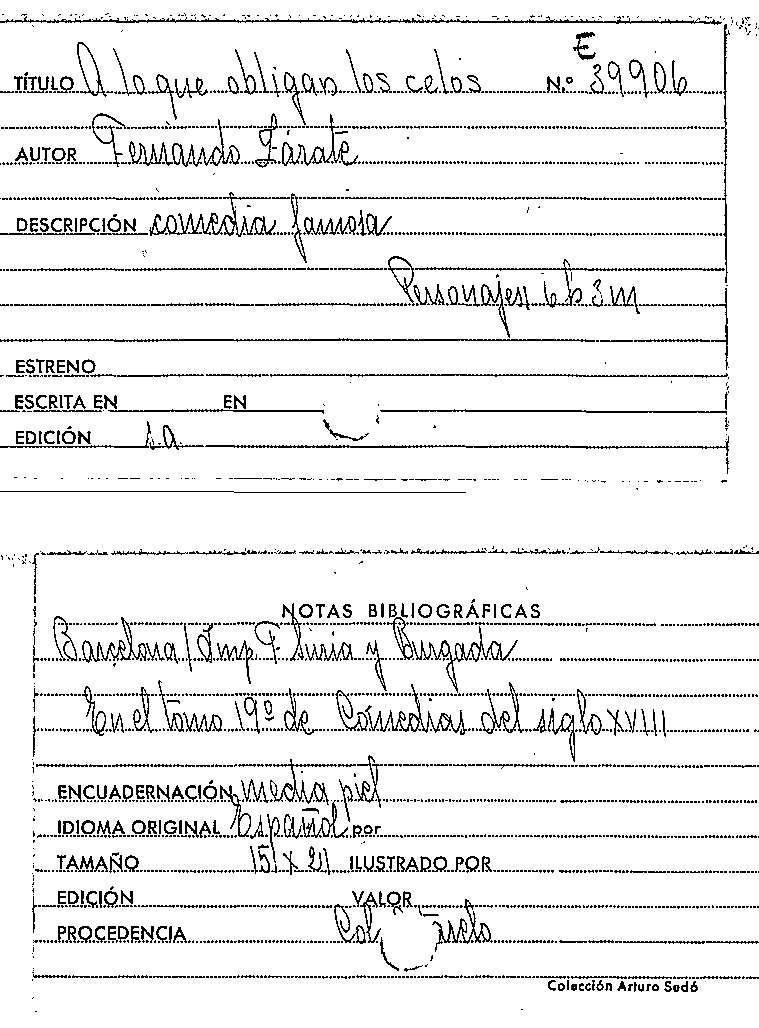 E
TÍTULO A lo que obligan los celos N.º 39906
AUTOR Fernando Zárate
DESCRIPCIÓN comedia famosa
Personajes 6 h 3 m
ESTRENO
ESCRITA EN EN
EDICIÓN s.a.
NOTAS BIBLIOGRÁFICAS
Barcelona/Imp F. Suria y Burgada
En el tomo 19º de Comedias del siglo XVIII
ENCUADERNACIÓN media piel
IDIOMA ORIGINAL Español por
TAMAÑO 15 x 21 ILUSTRADO POR
EDICIÓN VALOR
PROCEDENCIA Col
Colección Arturo Sedó